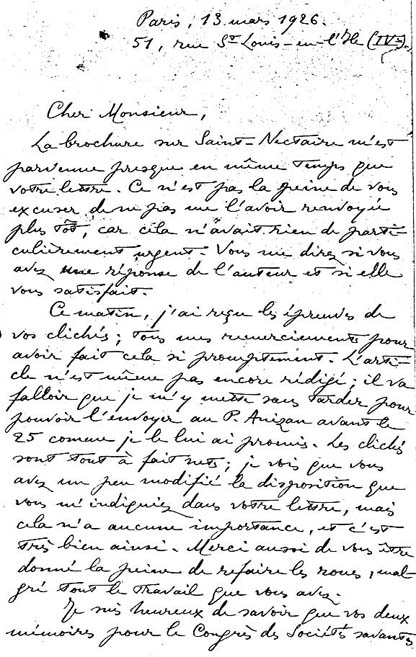 Paris, 13 mars 1926.
51, rue St Louis-en-l'Ile (IVe).
Cher Monsieur,
La brochure sur Saint-Nectaire m'est
parvenue presque en même temps que
votre lettre. Ce n'est pas la peine de vous
excuser de ne pas me l'avoir renvoyée
plus tôt, car cela n'avait rien de parti-
culièrement urgent. Vous me direz si vous
avez une réponse de l'auteur et si elle
vous satisfait.
Ce matin, j'ai reçu les épreuves de
vos clichés ; tous mes remerciements pour
avoir fait cela si promptement. L'arti-
cle n'est même pas encore rédigé ; il va
falloir que je m'y mette sans tarder pour
pouvoir l'envoyer au P. Anizan avant le
25 comme je le lui ai promis. Les clichés
sont tout à fait nets ; je vois que vous
avez un peu modifié la disposition que
vous m'indiquiez dans votre lettre, mais
cela n'a aucune importance, et c'est
très bien ainsi. Merci aussi de vous être
donné la peine de refaire les roues, mal-
gré tout le travail que vous avez.
Je suis heureux de savoir que vos deux
mémoires pour le Congrès des Sociétés savantes